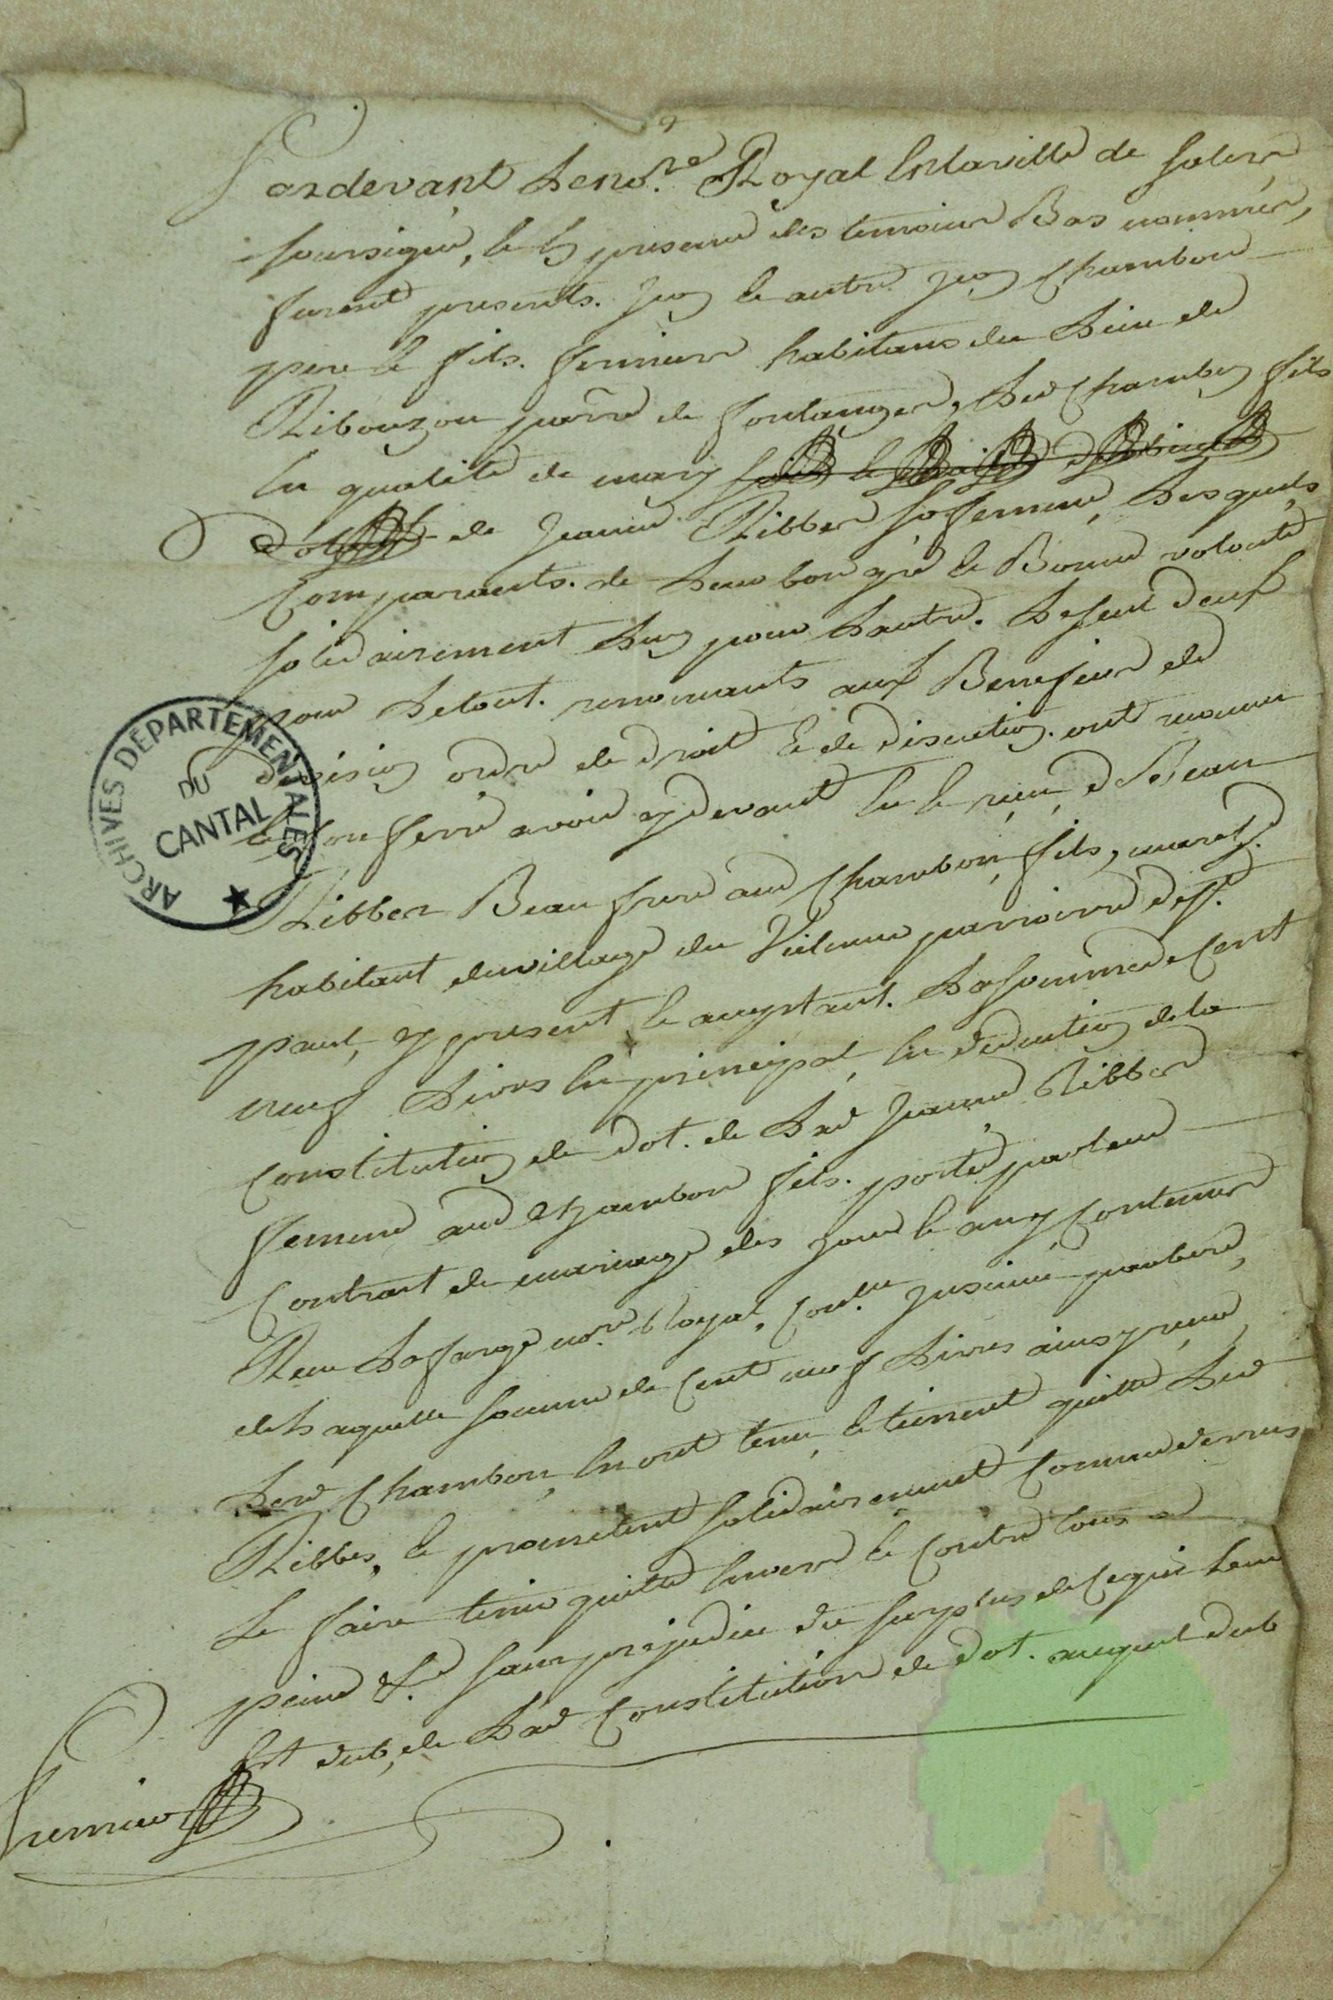 Pardevant Le no.re Royal En la ville de Salers
soussigné, Et En presence des temoins Bas nommés,
furent presents. Jean Et autre Jean Chambon
pere Et fils. fermiers habitans du Lieu de
Ribouzon parre de fontanges, Led Chambon fils
En qualité de mary
de Jeanne Ribbes sa femme, Lesquels
Comparants. de Leur bon gré Et Bonne volonté
solidairement L'un pour Lautre. Le seul d'eux
pour Le tout. renoncants aux Benefices de
division ordre de droit Et de discution. ont reconnu
Et Confessé avoir cy devant Eu Et reçu, de Jean
Ribbes Beau frere aud Chambon, fils, march.d
habitant du village du paroisse de S.t
paul, cy present, Et acceptant. La somme de Cent
neuf Livres En principal, En deduction de la
Constitution de dot. de Lad Jeanne Ribbes
femme aud Chambon fils. porté par leur
Contrat de mariage des jour Et an y Contenus
Reçu Lafarge no.re Royal, Con.lle Insinué
de Laquelle somme de Cent neuf Livres ainsy reçue
Lesd Chambon, En ont tenu, Et tienent quitte Led
Ribbes, Et promettent solidairement Comme dessus
Le faire tenir quitte Envers Et Contre tous a
peine &.a sans prejudice du surplus de Ce qui Leur
Est dub, de Lad Constitution de dot. auquel dub
ARCHIVES DÉPARTEMENTALES
DU
CANTAL